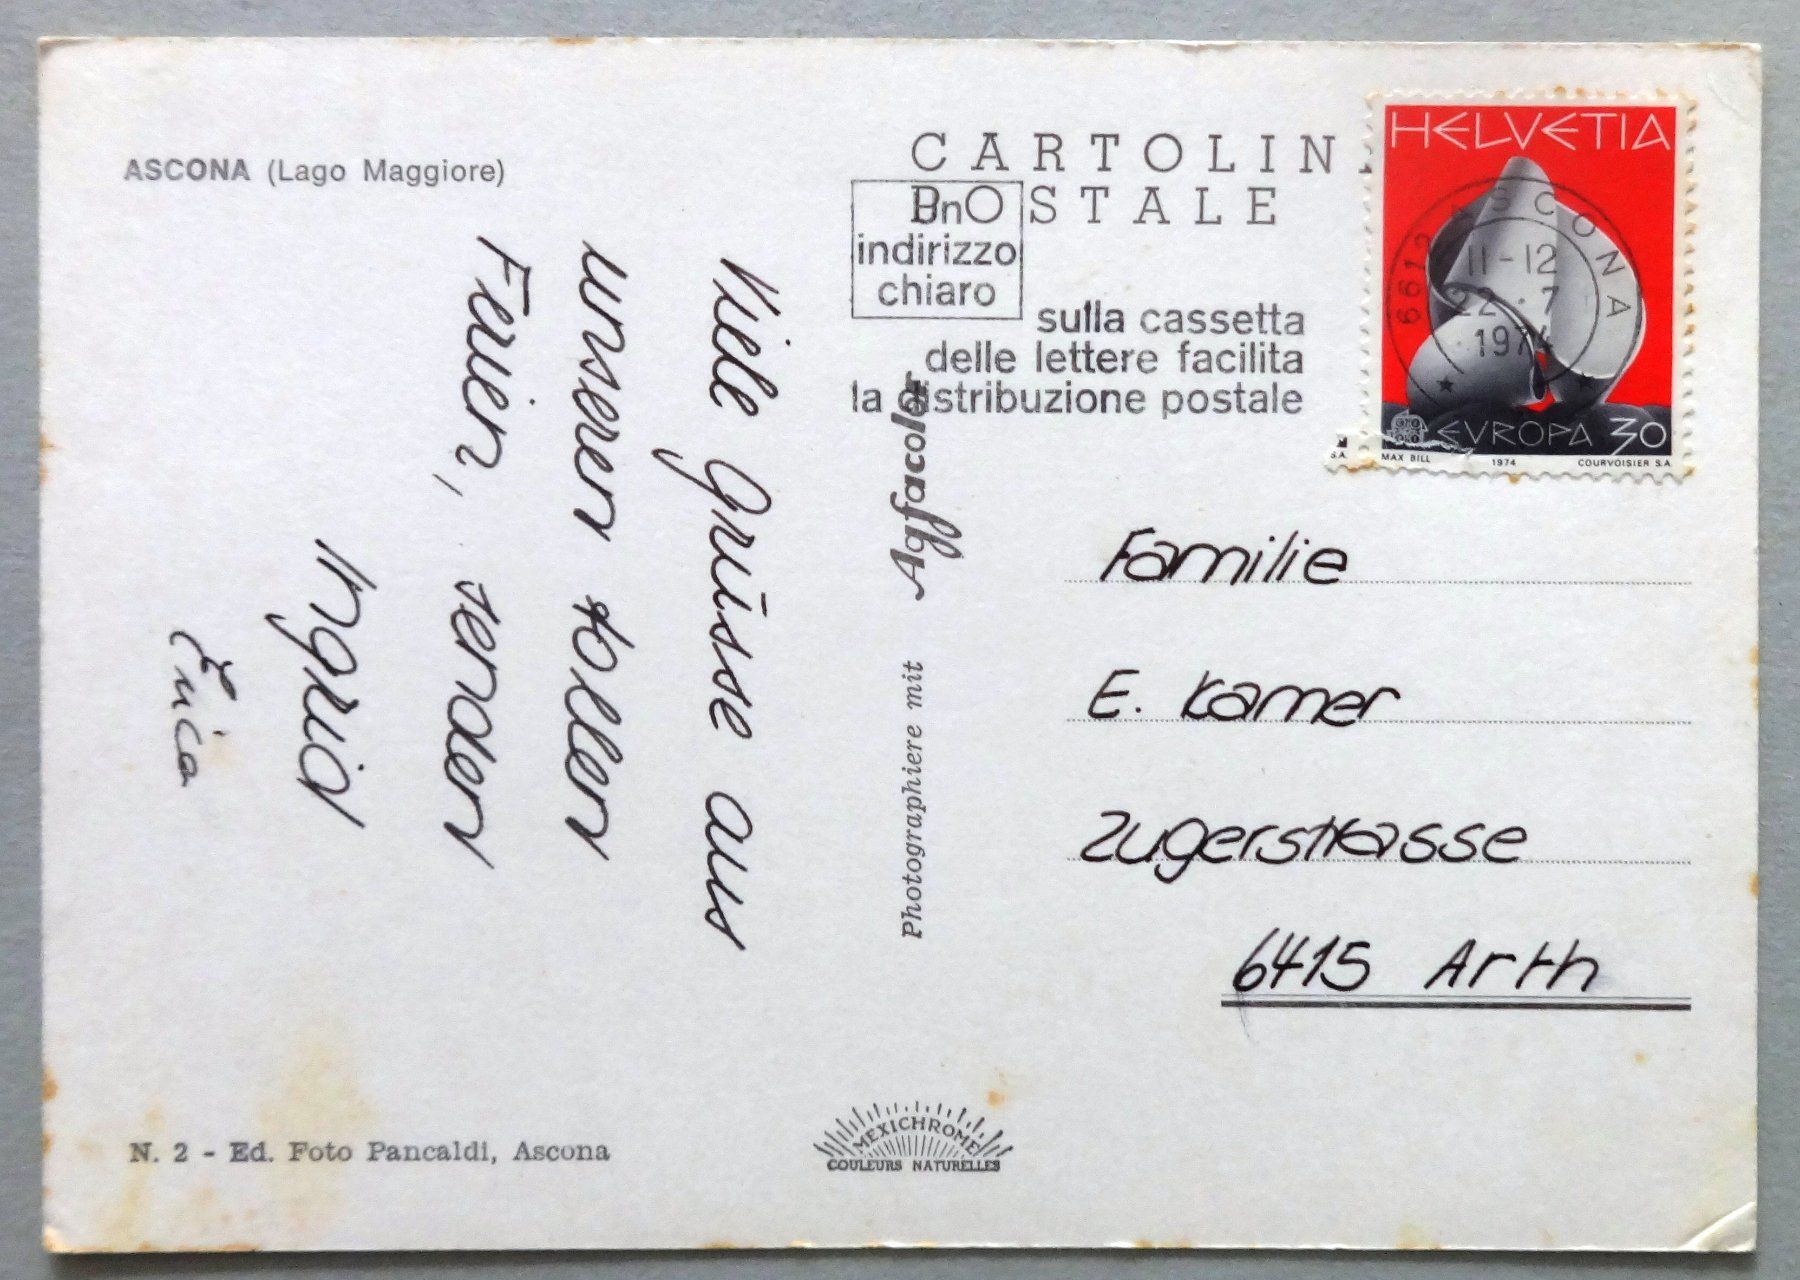 ASCONA (Lago Maggiore)
Viele Grüsse aus
unseren tollen
Ferien, senden
Ingrid
Erica
N. 2 - Ed. Foto Pancaldi, Ascona
Photographiere mit Agfacolor
MEXICHROME
COULEURS NATURELLES
CARTOLIN
POSTALE
Un
indirizzo
chiaro
sulla cassetta
delle lettere facilita
la distribuzione postale
HELVETIA
6612 ASCONA
11-12
22.7
1974
EVROPA 30
S.A. MAX BILL 1974 COURVOISIER S.A.
Familie
E. Kamer
Zugerstrasse
6415 Arth